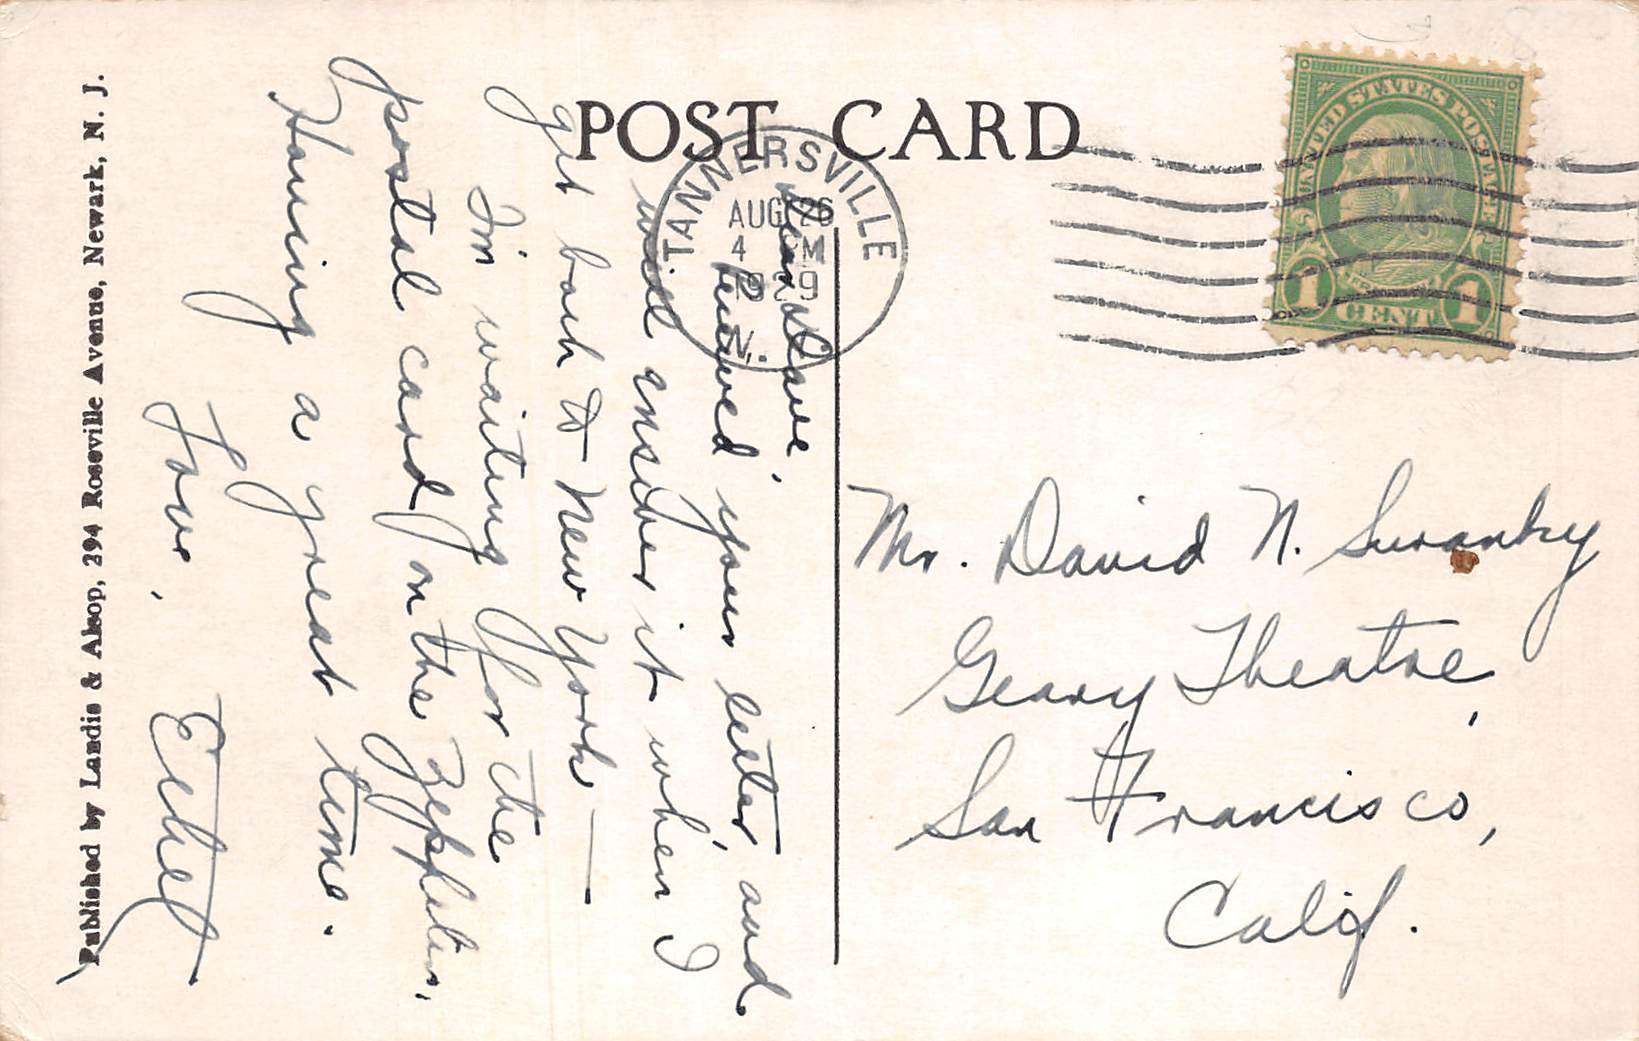 POST CARD
TANNERSVILLE
AUG 26
4 PM
1929
N.
UNITED STATES POSTAGE
FRANKLIN
1 CENT 1
Dear Dave,
Received your letter, and
will answer it when I
get back to New York —
I'm waiting for the
postal card on the Zeppelin,
Having a great time.
Love,
Ethel
Mr. David N. Swanky
Geary Theatre,
San Francisco,
Calif.
Published by Landis & Alsop, 294 Roseville Avenue, Newark, N. J.